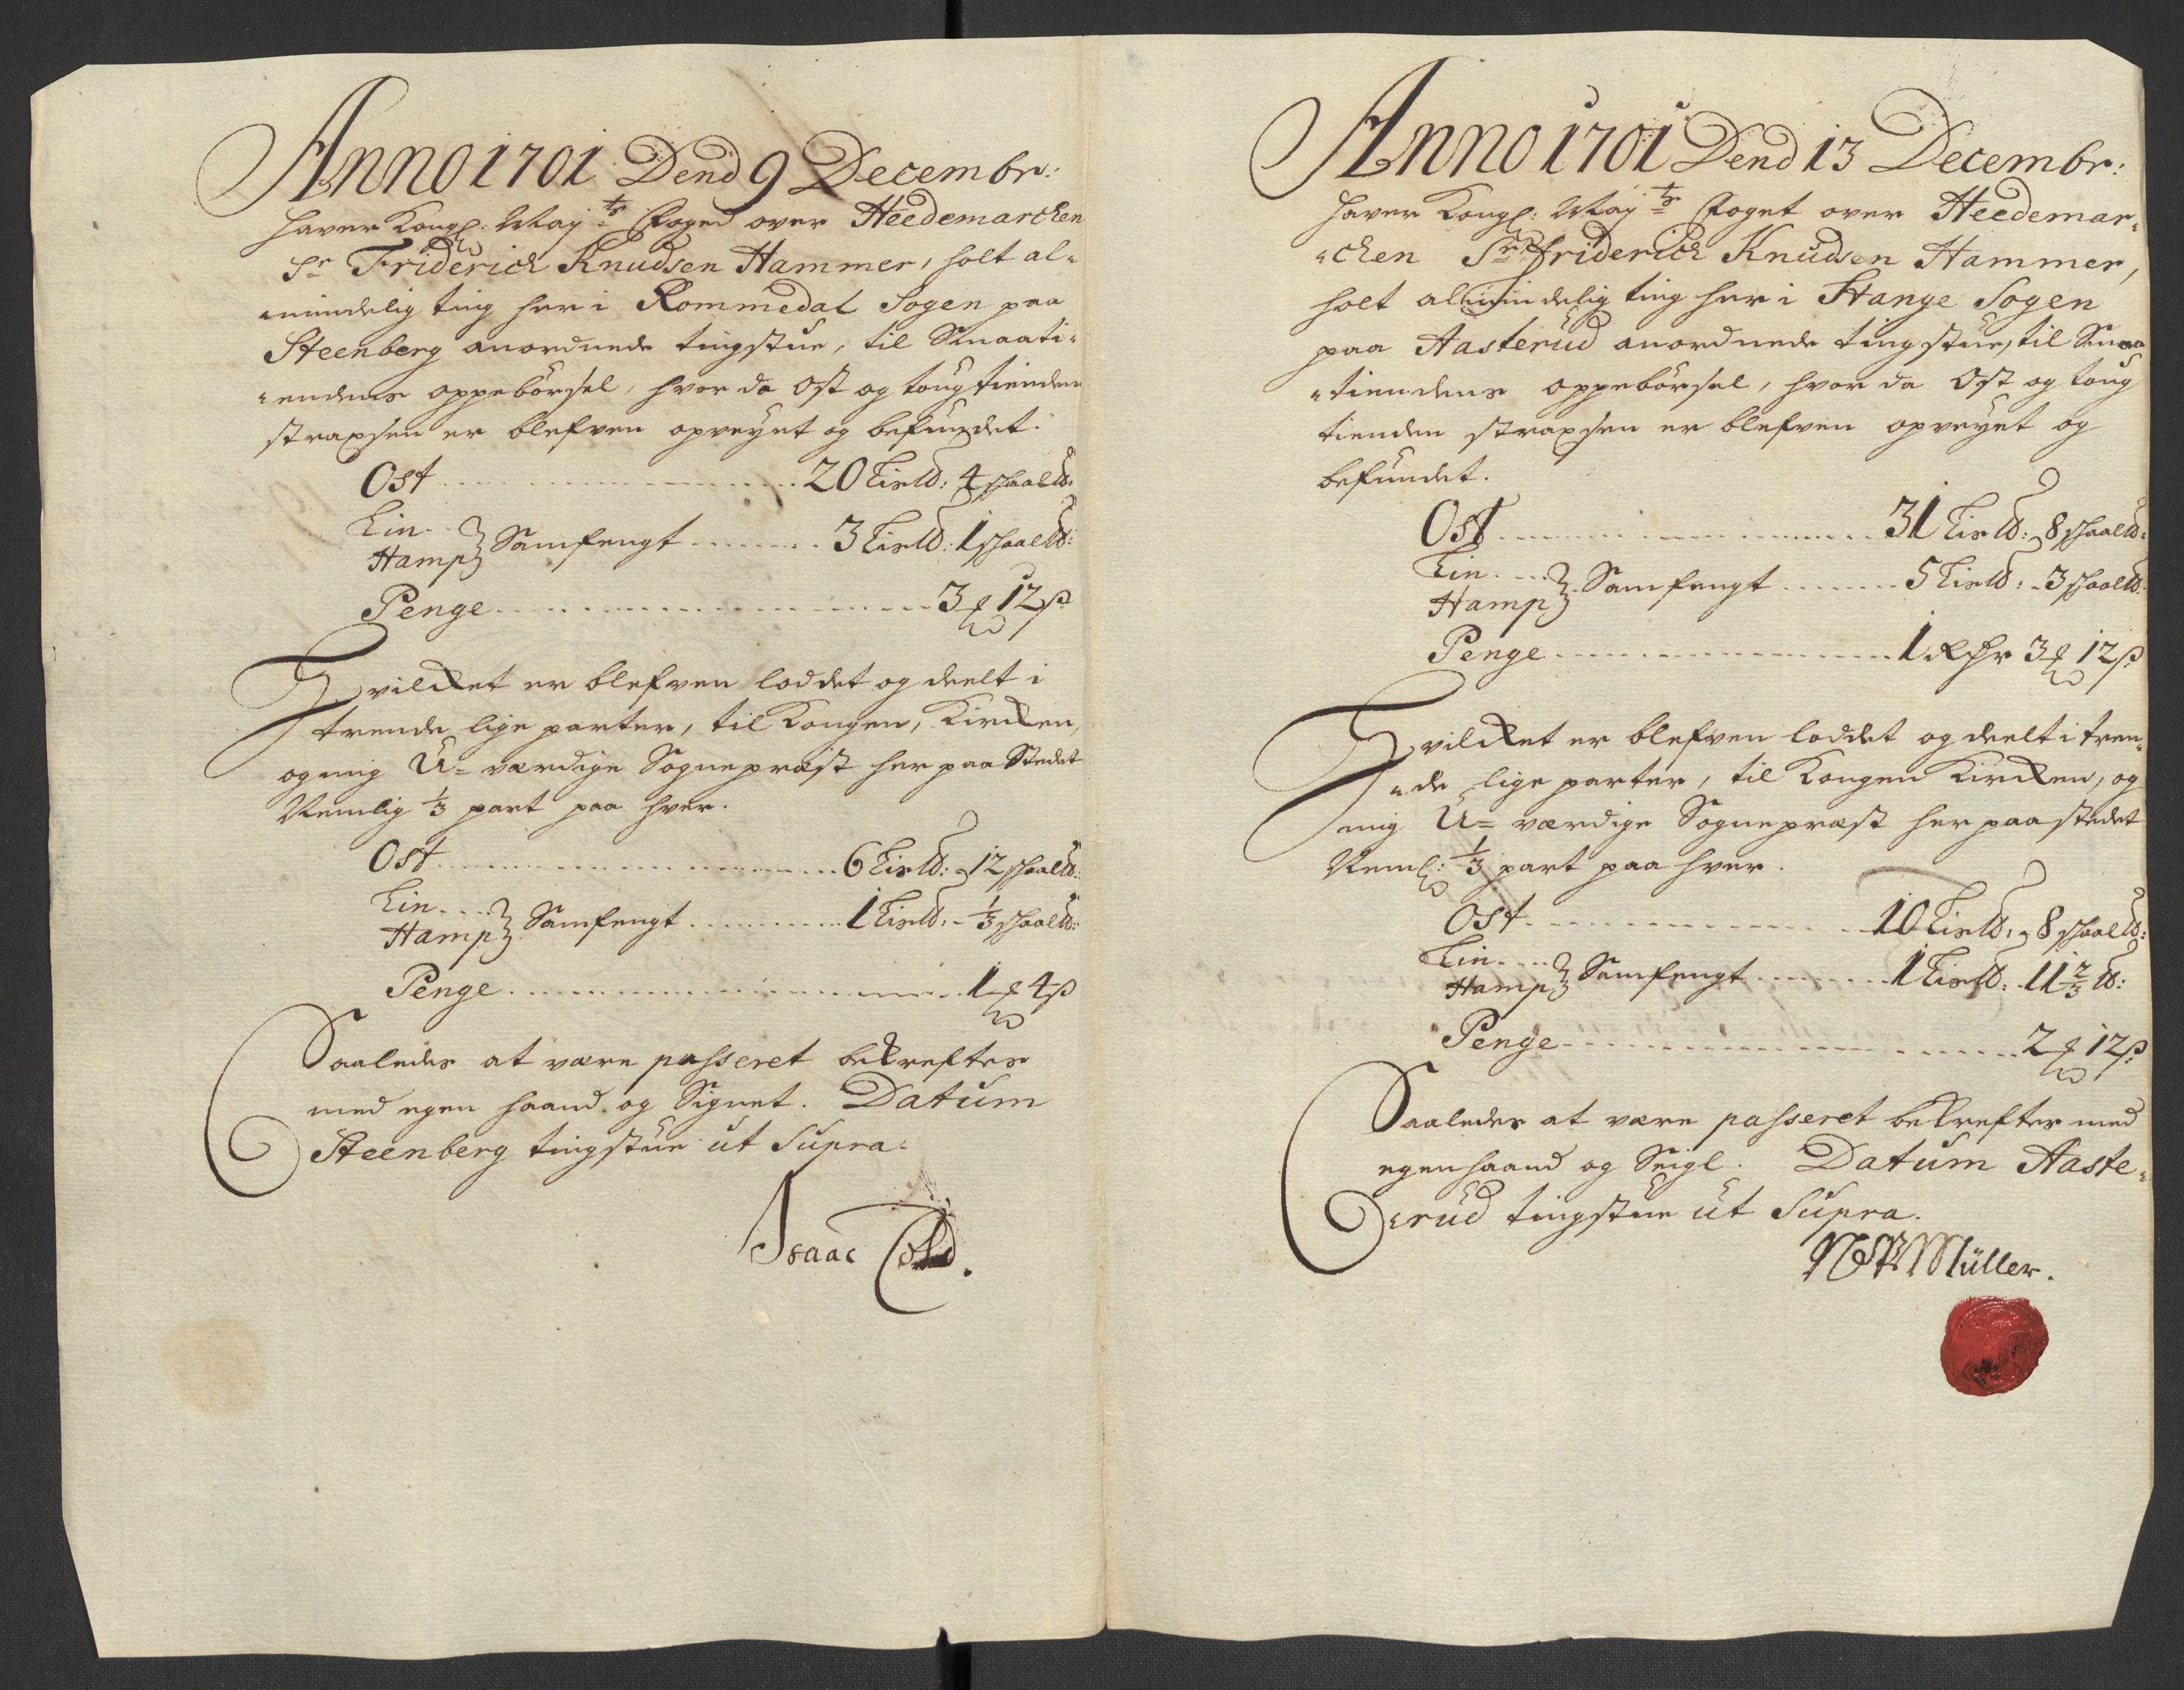 Anno 1701 Dend 9 Decembr:
haver Kongl: May.ts Foged over Heedemarchen
Sr Friderich Knudsen Hammer, holt al-
-mindelig ting her i Rommedal Sogen paa
Steenberg anordnede tingstue, til Smaati-
-endens oppebörsel, hvor da Ost og toug tienden
straxsen er blefven opveyet og befundet.
Ost 20 Lisld: 4 schaald:
Lin
Hamp Samfengt 3 Lisld: 1 schaald:
Penge 3 12 s
Hvilcket er blefven loddet og deelt i
trende lige parter, til Kongen, Kircken,
og mig U-værdige Sognepræst her paa Stedet
Nemlig 1/3 part paa hver.
Ost 6 Lisld: 12 schaald:
Lin
Hamp Samfengt 1 Lisld: 1/3 schaald:
Penge 1 4 s
Saaledes at være passeret bekreftes
med egen haand og Signet. Datum
Steenberg tingstue ut Supra.
Isaac Cold.
Anno 1701 Dend 13 Decembr:
haver Kongl: May.ts Foget over Heedemar-
-chen Sr Friderich Knudsen Hammer,
holt almindelig ting her i Stange Sogen
paa Aasterud anordnede tingstue, til Smaa
-tiendens oppebörsel, hvor da Ost og toug
tienden straxsen er blefven opveyet og
befundet.
Ost 31 Lisld: 8 schaald:
Lin
Hamp Samfengt 5 Lisld: 3 schaald:
Penge 1 Rdr 3 12 s
Hvilcket er blefven loddet og deelt i tren-
-de lige parter, til Kongen Kircken, og
mig U-værdige Sognepræst her paa stedet
Neml: 1/3 part paa hver.
Ost 10 Lisld: 8 schaald:
Lin
Hamp Samfengt 1 Lisld: 11 2/3 ld:
Penge 2 12 s
Saaledes at være passeret bekreftes med
egen haand og Seigl. Datum Aaste-
-rud tingstue ut Supra.
Müller.